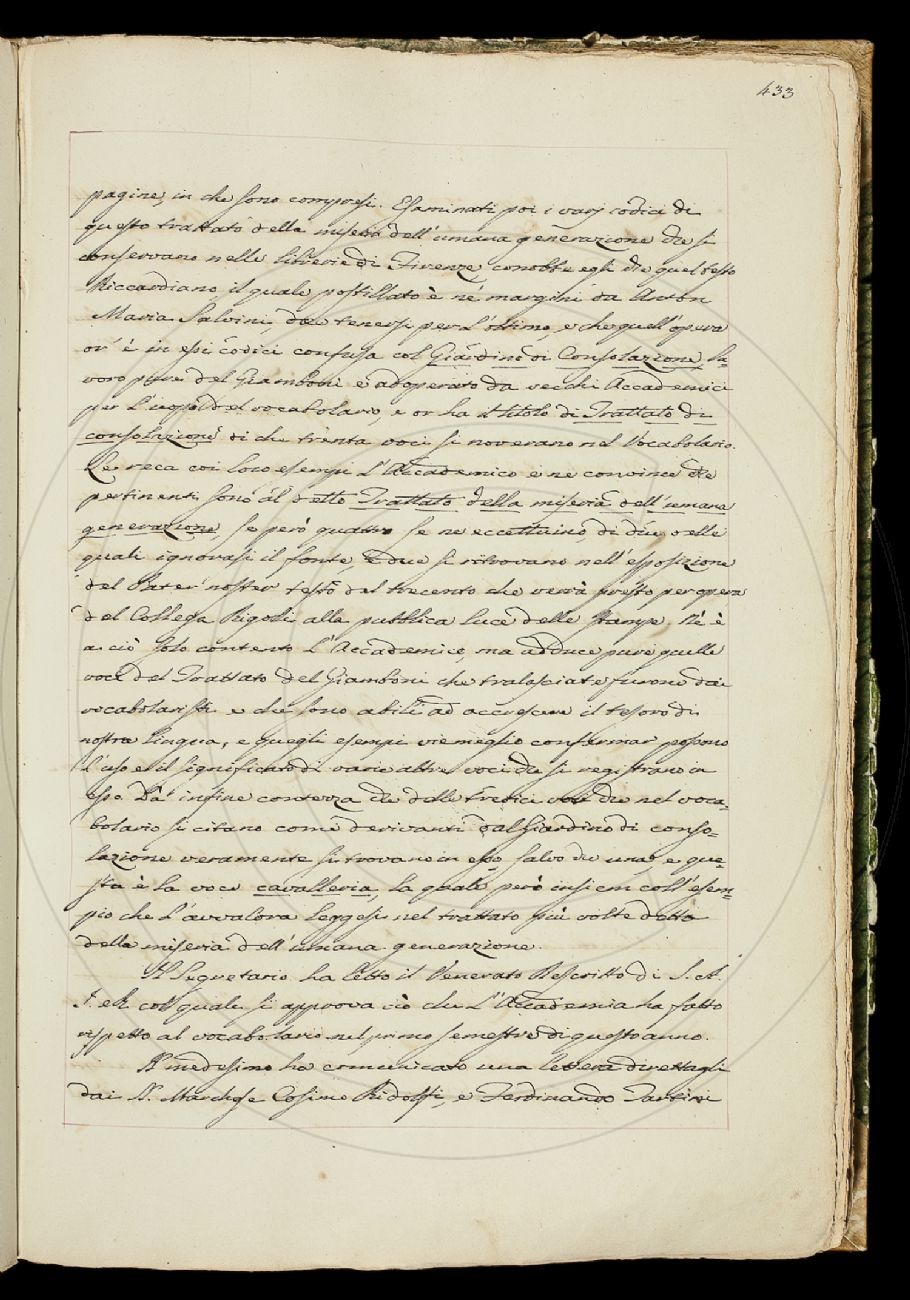 433
pagine, in che sono compresi. Esaminati poi i varj codici di
questo trattato della miseria dell'umana generazione che si
conservano nelle librerie di Firenze, conobbe egli che quel testo
Riccardiano il quale postillato è ne' margini da Anton
Maria Salvini dee tenersi per l'ottimo, e che quell'opera
or' è in essi codici confusa col Giardino di Consolazione, la-
voro pure del Giamboni e adoperato da vecchi Accademici
per l'uopo del vocabolario, e or ha il titolo di Trattato di
consolazione di che trenta voci si noverano nel Vocabolario.
Le reca coi loro esempi l'Accademico e ne convince che
pertinenti sono al detto Trattato della miseria dell'umana
generazione, se però quattro se ne eccettuino, di due delle
quali ignorasi il fonte, e due si ritrovano nell'esposizione
del Pater noster testo del trecento che verrà presto per opera
del Collega Rigoli alla pubblica luce delle stampe. Nè è
a ciò solo contento l'Accademico, ma adduce pure quelle
voci del Trattato del Giamboni che tralasciate furono dai
vocabolaristi e che sono abili ad accrescere il tesoro di
nostra lingua, e quegli esempi viemeglio confermar possono
l'uso et il significato di varie altre voci che si registrano in
esso. Dà infine contezza che delle tredici voci che nel voca-
bolario si citano come derivanti dal Giardino di conso-
lazione veramente si trovano in esso salvo che una, e que-
sta è la voce cavalleria, la quale però insiem coll'esem-
pio che l'avvalora leggesi nel trattato più volte detto
della miseria dell'umana generazione.
Il Segretario ha letto il Venerato Rescritto di S. A.
I. e R. col quale si approva ciò che l'Accademia ha fatto
rispetto al vocabolario nel primo semestre di questo anno.
Il medesimo ha comunicato una lettera direttagli
dai N. Marchese Cosimo Ridolfi, e Ferdinando Tartini